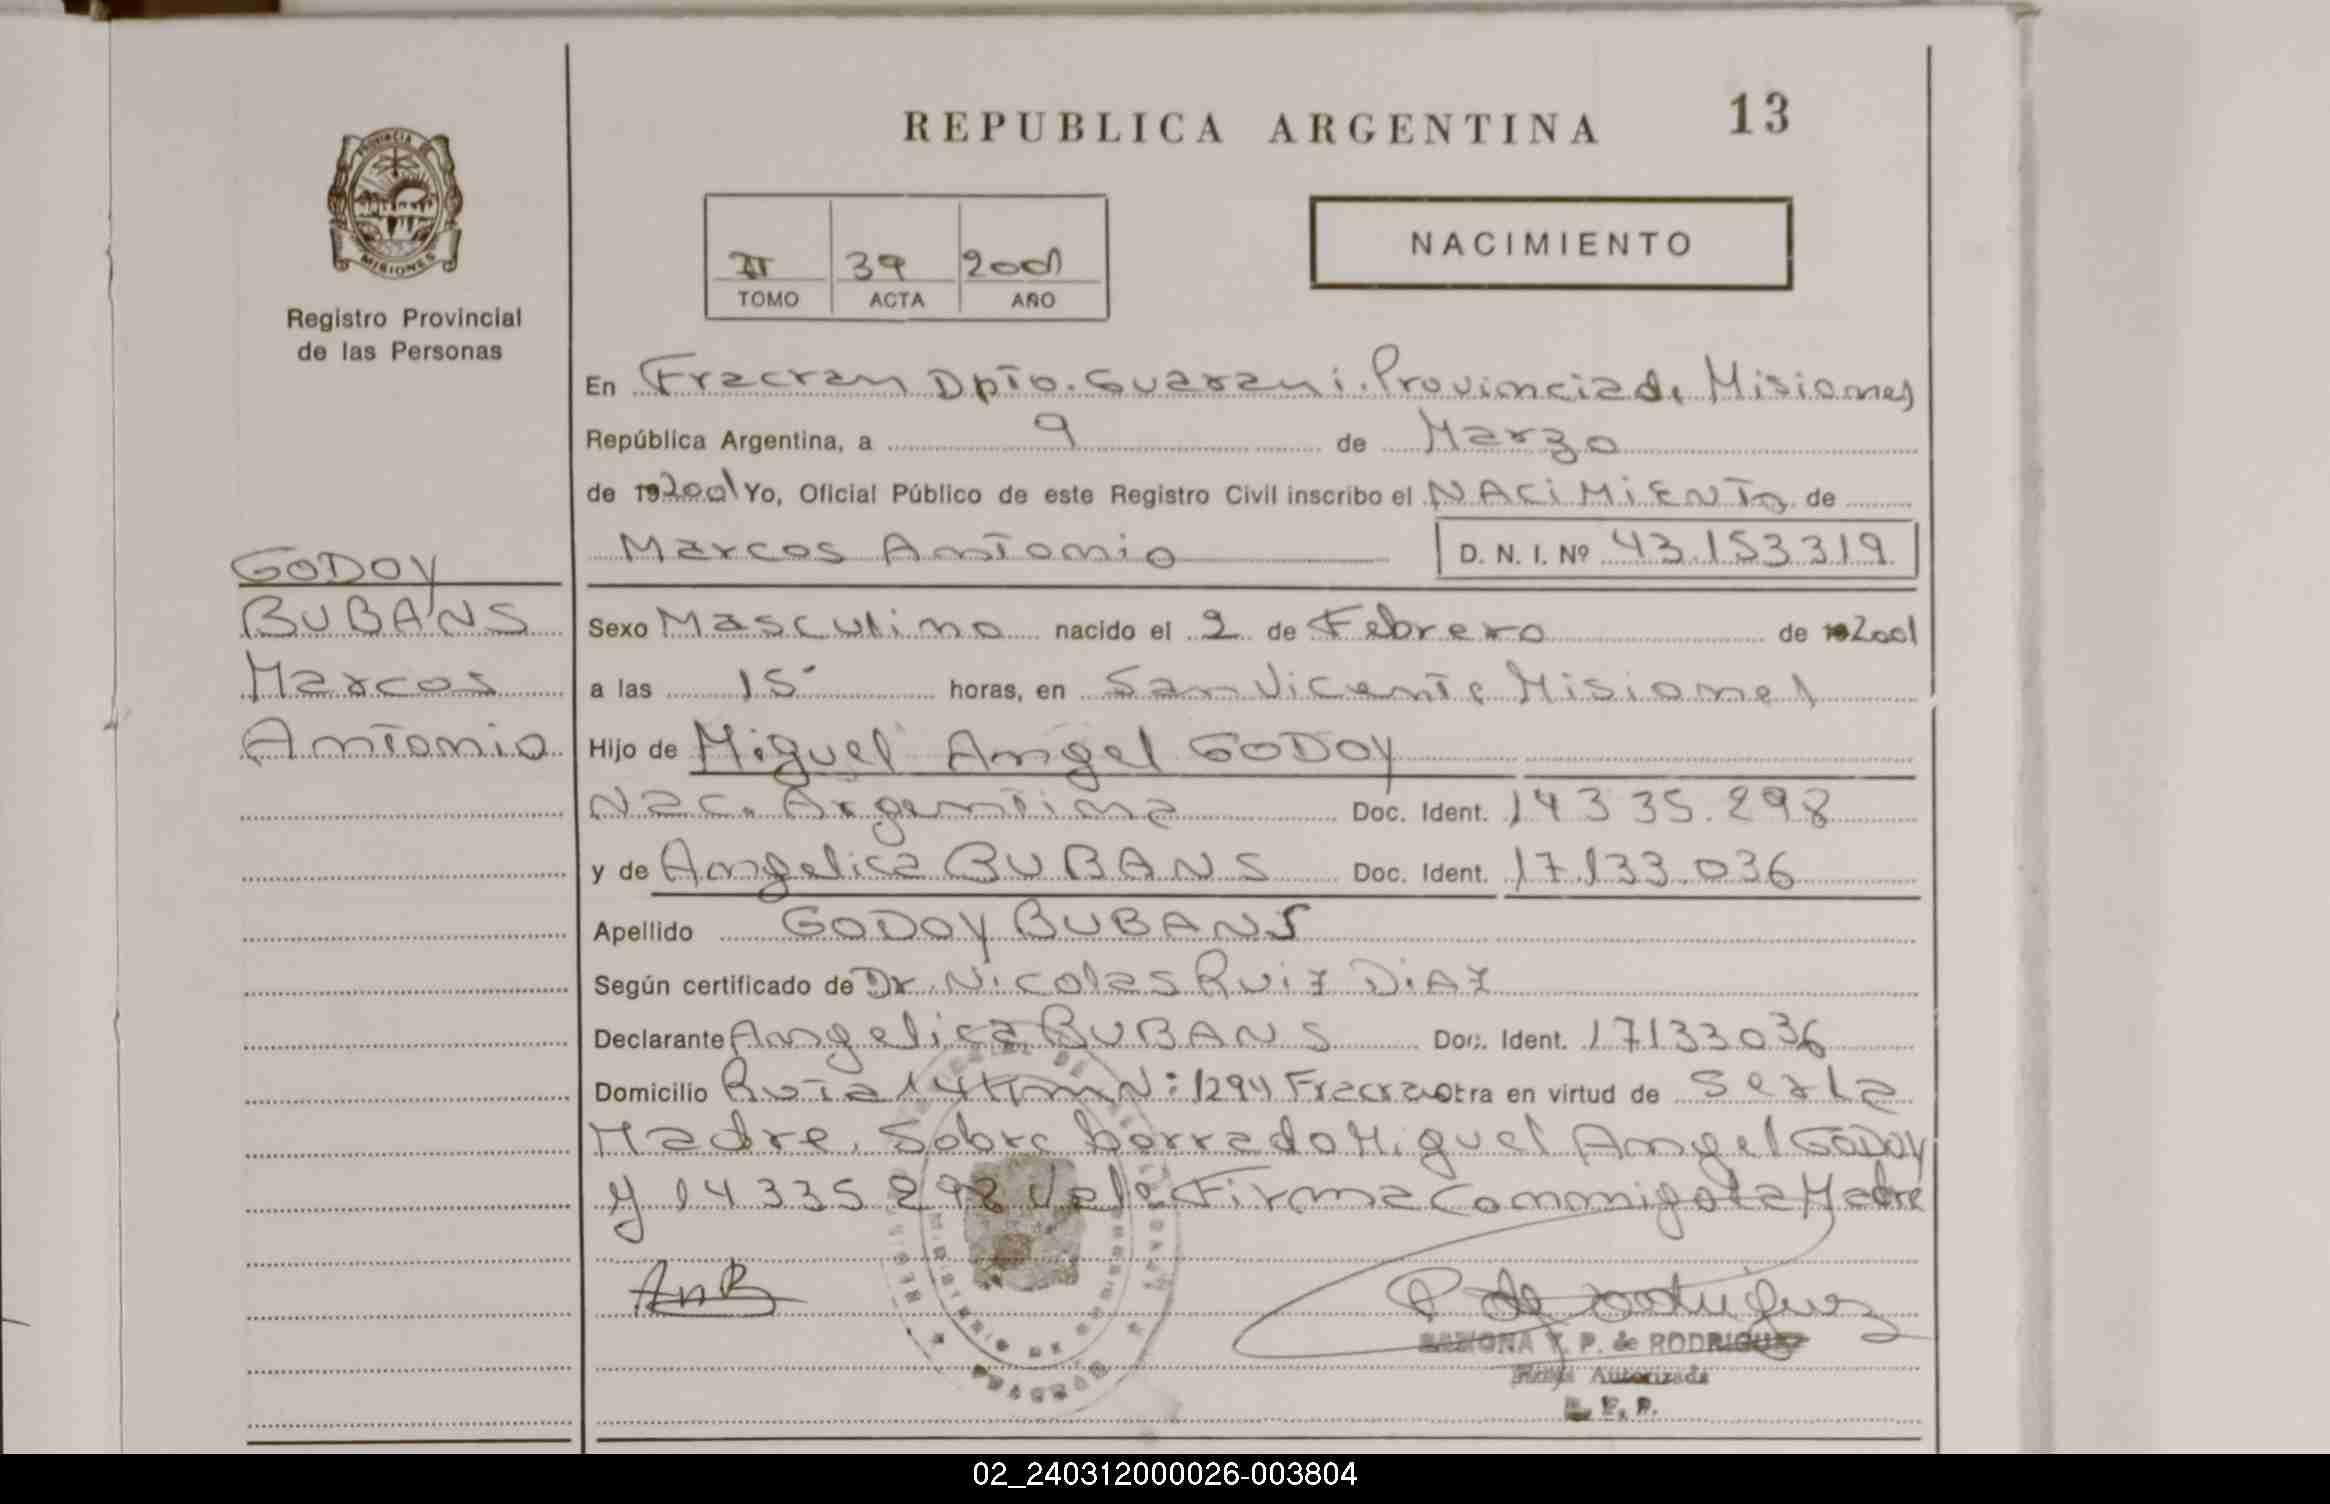 REPUBLICA ARGENTINA
13
PROVINCIA DE
MISIONES
Registro Provincial
de las Personas
II 39 2001
TOMO ACTA AÑO
NACIMIENTO
En Fracran Dpto. Guarani. Provincia de Misiones
República Argentina, a 9 de Marzo
de 192001 Yo, Oficial Público de este Registro Civil inscribo el NACIMIENTO de
Marcos Antonio D. N. I. Nº 43.153.319
GODOY
BUBANS
Marcos
Antonio
Sexo Masculino nacido el 2 de Febrero de 192001
a las 15 horas, en San Vicente Misiones
Hijo de Miguel Angel GODOY
Nac. Argentina Doc. Ident. 14335.298
y de Angelica BUBANS Doc. Ident. 17.133.036
Apellido GODOY BUBANS
Según certificado de Dr. Nicolas Ruiz DiAZ
Declarante Angelica BUBANS Doc. Ident. 17133036
Domicilio Ruta 14 Km N: 1294 Fracran Obra en virtud de Ser La
Madre. Sobre borrado Miguel Angel GODOY
y 14335298 Vale Firma Conmigo La Madre
AnB
P de Rodriguez
RAMONA Y. P. de RODRIGUEZ
Firma Autorizada
R. P. P.
02_240312000026-003804